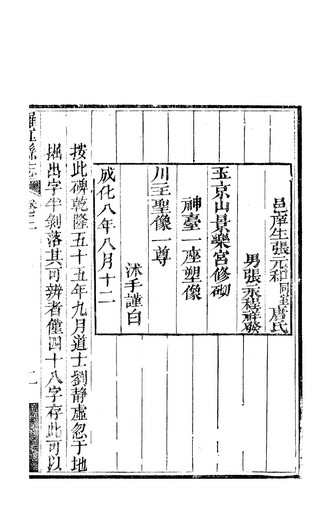 邑庠生張元程同室唐氏
男張永程祥發
玉京山景樂宮修砌
神臺一座塑像
川主聖像一尊
沐手謹白
成化八年八月十二
按此碑乾隆五十五年九月道士劉靜虛忽于地
掘出字半剝落其可辨者僅四十八字存此可以
羅江縣志
卷三